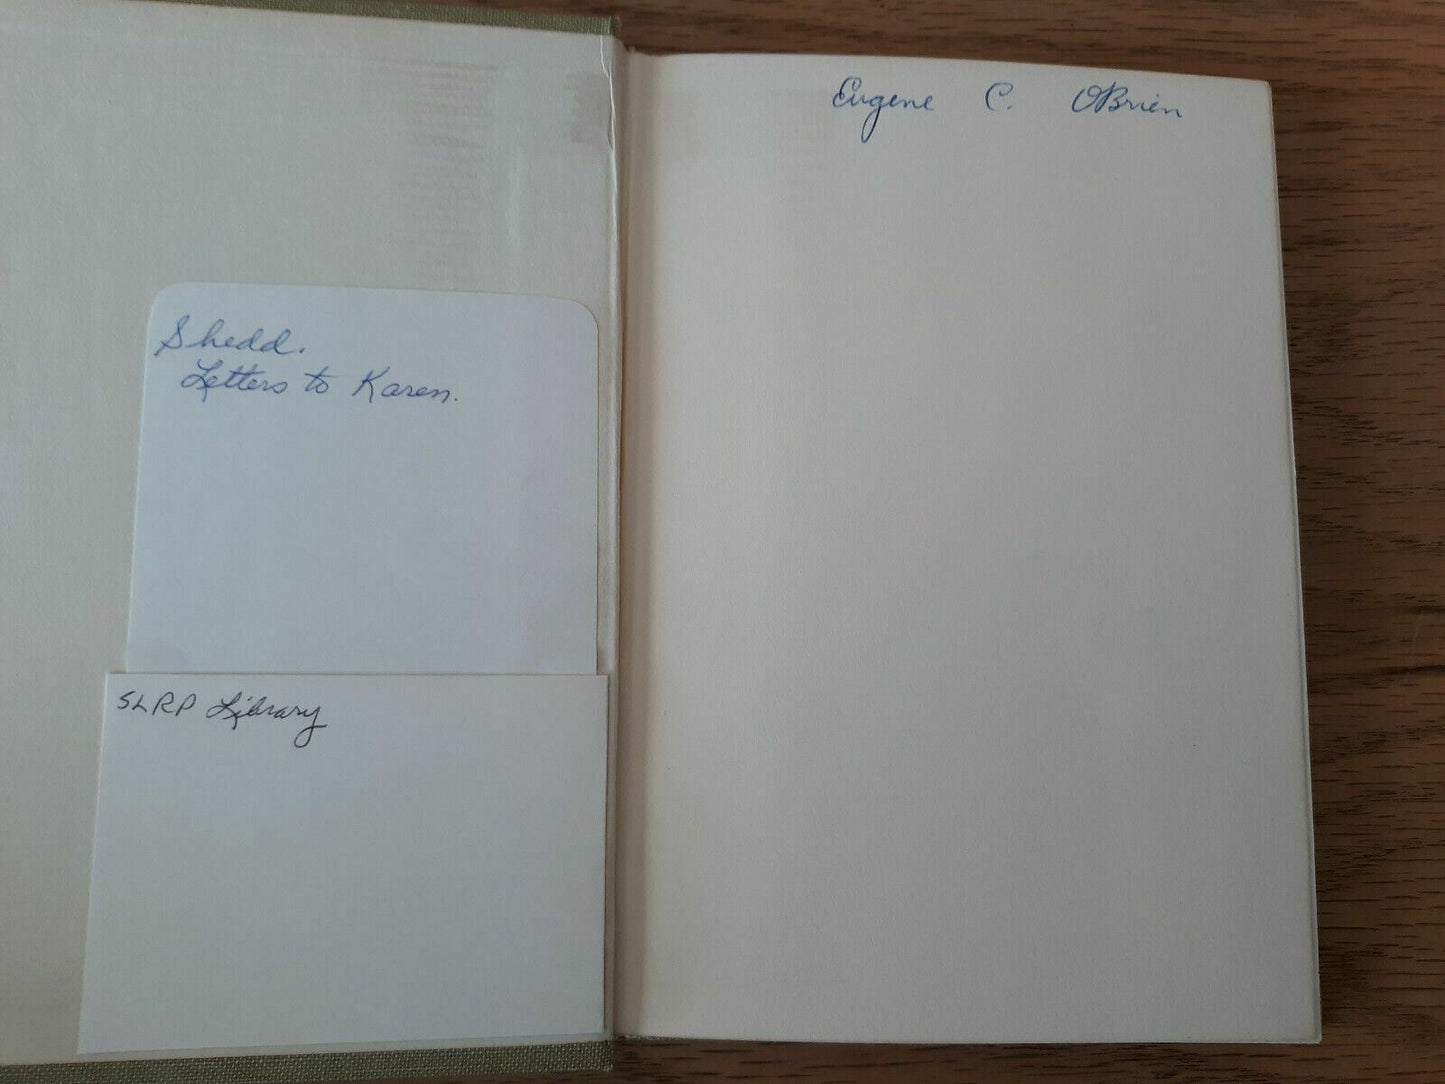 Shedd.
Letters to Karen.
SLRP Library
Eugene C. OBrien